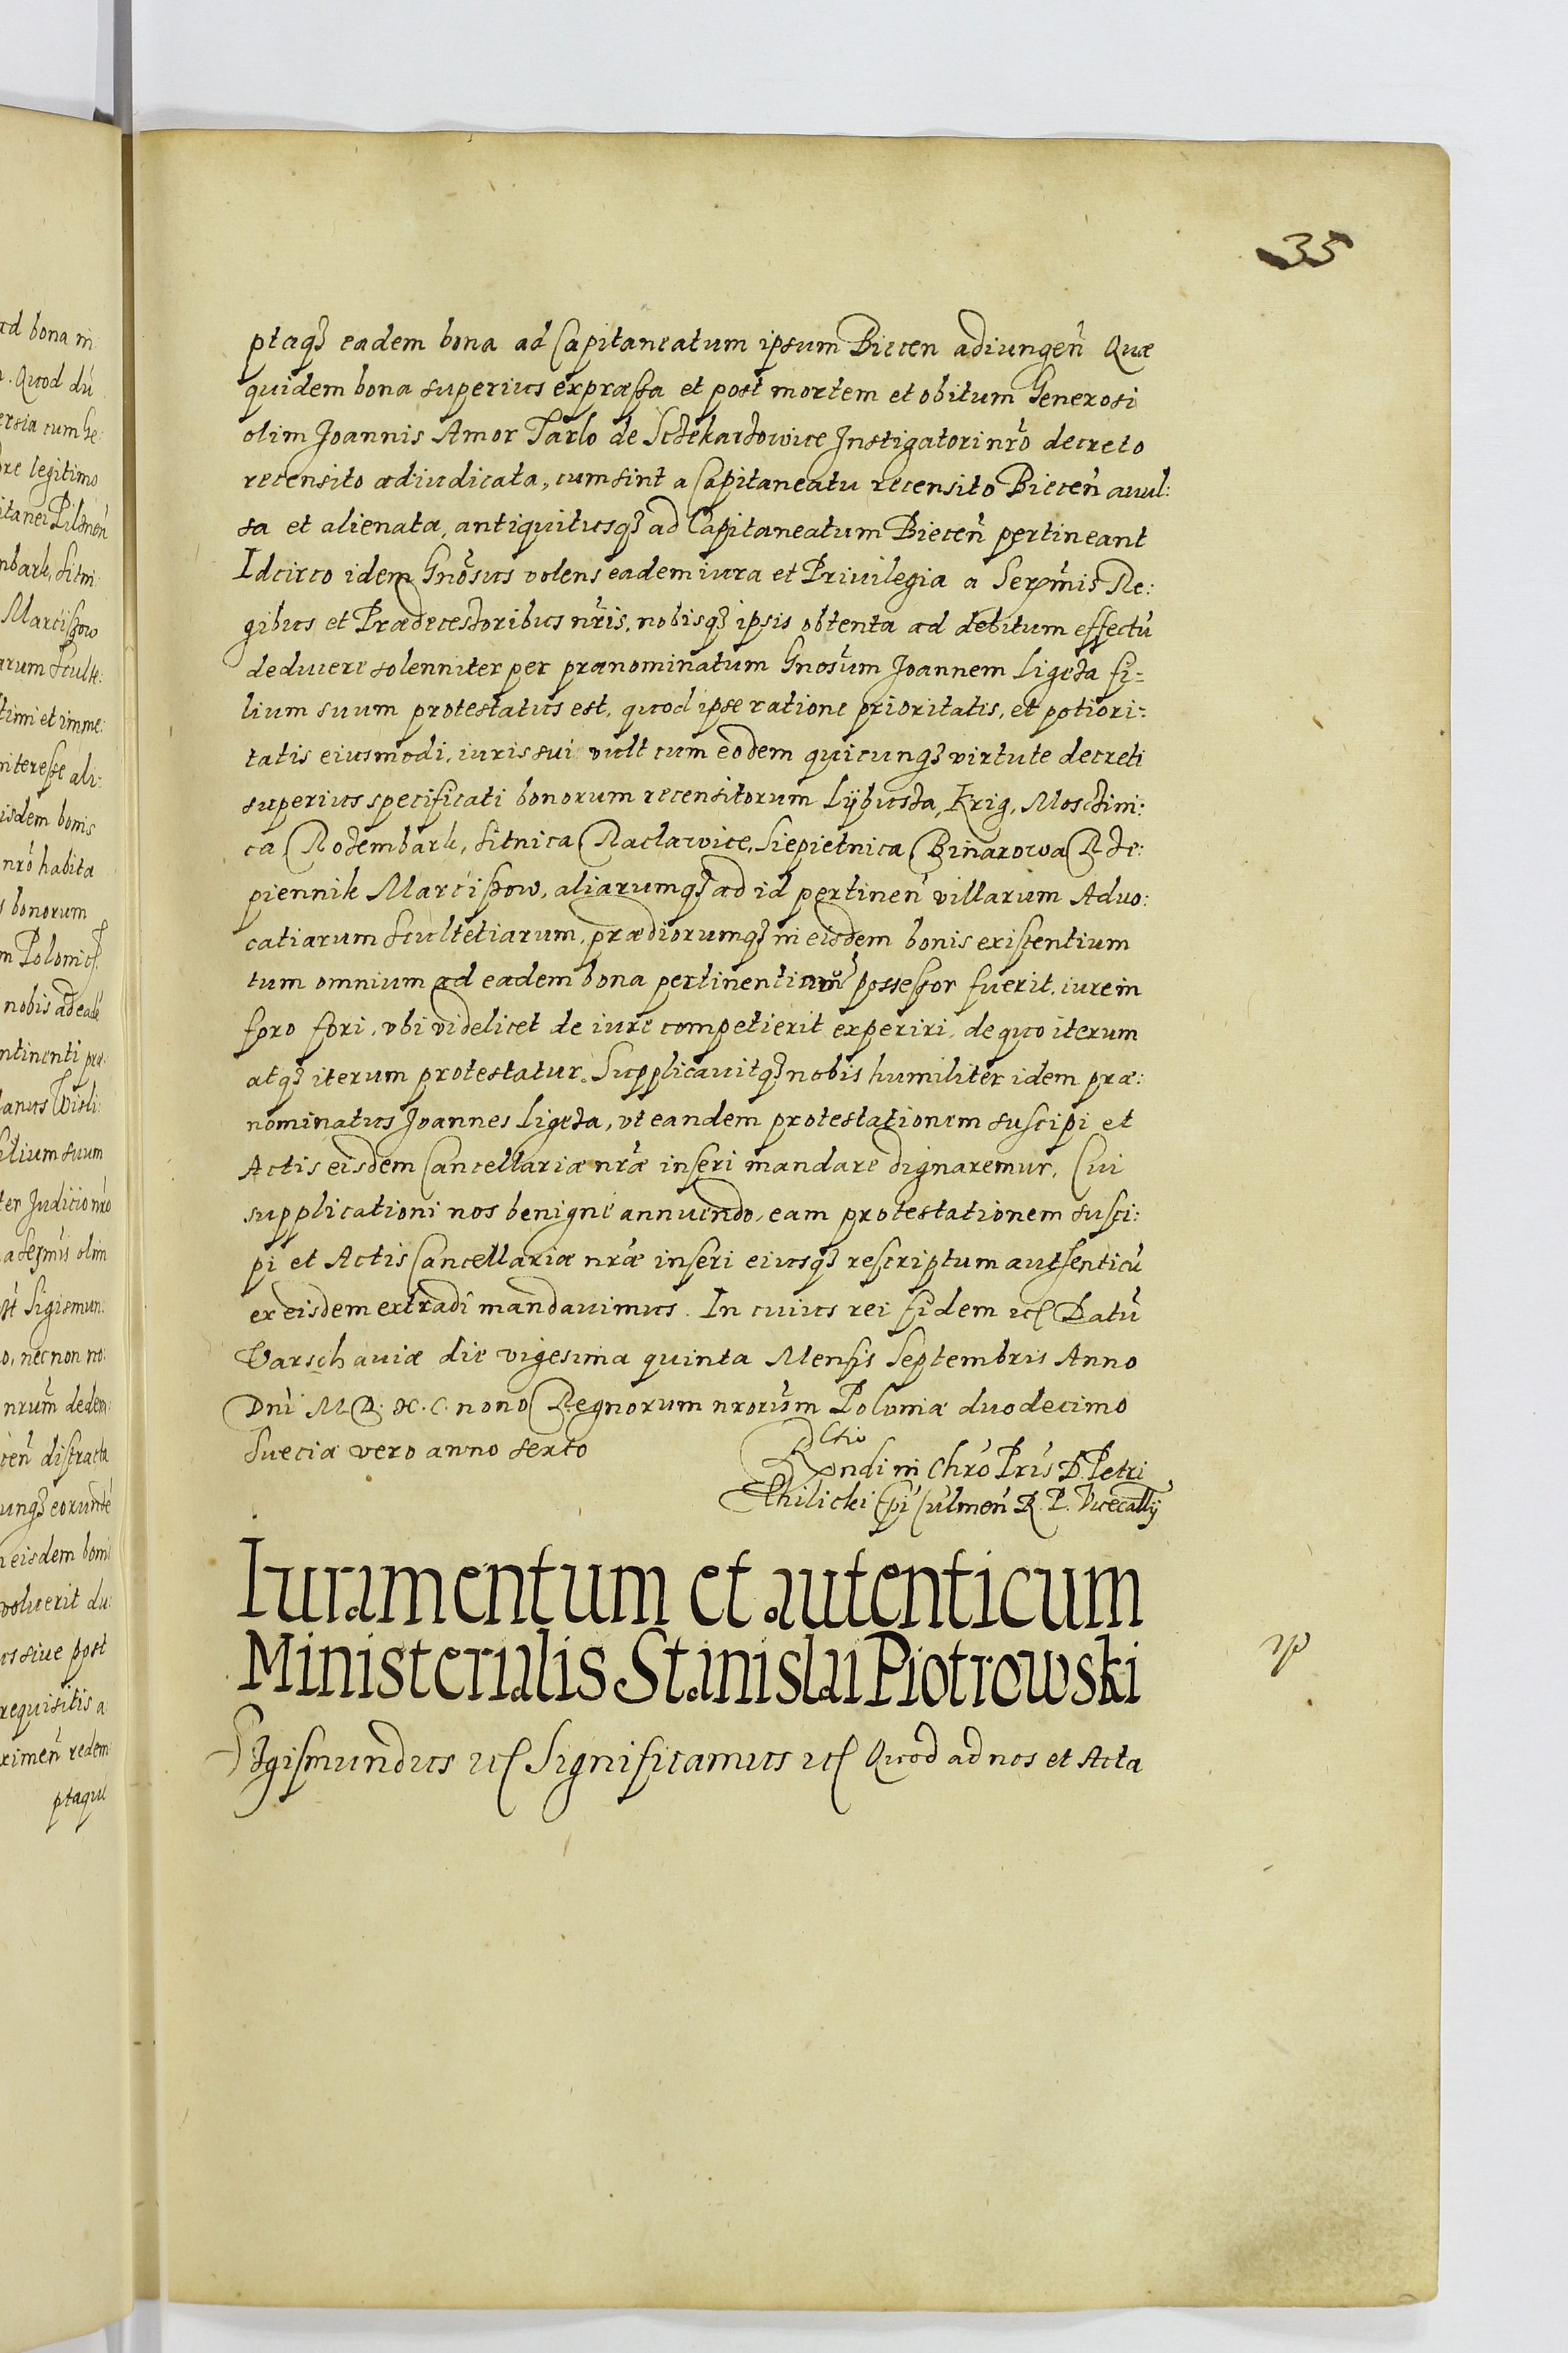 35
ptaqꝫ eadem bona ad Capitaneatum ipsum Biecen adiungen̄ Quæ
quidem bona superius expræssa et post mortem et obitum Generosi
olim Joannis Amor Tarlo de Sczekarzowice Instigatori nr̃o decreto
recensito adiudicata, cum sint a Capitaneatu recensito Biecen̄ auul:
sa et alienata, antiquitusqꝫ ad Capitaneatum Biecen̄ pertineant
Idcirco idem Gnõsus volens eadem iura et Priuilegia a Serẽmis Re:
gibus et Prædecessoribus nr̃is, nobisqꝫ ipsis obtenta ad debitum effectū
deducere solenniter per prænominatum Gnosũm Joannem Ligeza fi:
lium suum protestatus est, quod ipse ratione prioritatis, et potiori:
tatis eiusmodi, iuris sui vult cum eodem quicunqꝫ virtute decreti
superius specificati bonorum recensitorum Lÿbusza, Krig, Mosczeni:
ca Rozembark, Sitnica Raclawice, Siepietnica Binarowa Rze:
piennik Marciszow, aliarumqꝫ ad id pertinen̄ villarum Aduo:
catiarum Scultetiarum, prædiorumqꝫ in eisdem bonis existentium
tum omnium ad eadem bona pertinentium possessor fuerit, iure in
foro fori, vbi videlicet de iure competierit experiri, de quo iterum
atqꝫ iterum protestatur. Supplicauitqꝫ nobis humiliter idem præ:
nominatus Joannes Ligeza, vt eandem protestationem suscipi et
Actis eisdem Cancellariæ nr̃æ inseri mandare dignaremur, Cui
supplicationi nos benigne annuendo, eam protestationem susci:
pi et Actis Cancellariæ nr̃æ inseri eiusqꝫ rescriptum authenticū
ex eisdem extradi mandauimus. In cuius rei fidem etc Datū
Varschauiæ die vigesima quinta Mensis Septembris Anno
Dnĩ M. D. X. C. nono Regnorum nrorũm Poloniæ duodecimo
Sueciæ vero anno sexto
Rltio
Rẽndi in Chrõ Pr̃is D. Petri
Thilicki Epĩ Culmen̄ R. P. Vicecãlly
Iuramentum et autenticum
Ministerialis Stanislai Piotrowski
Sigismundus etc Significamus etc Quod ad nos et Acta